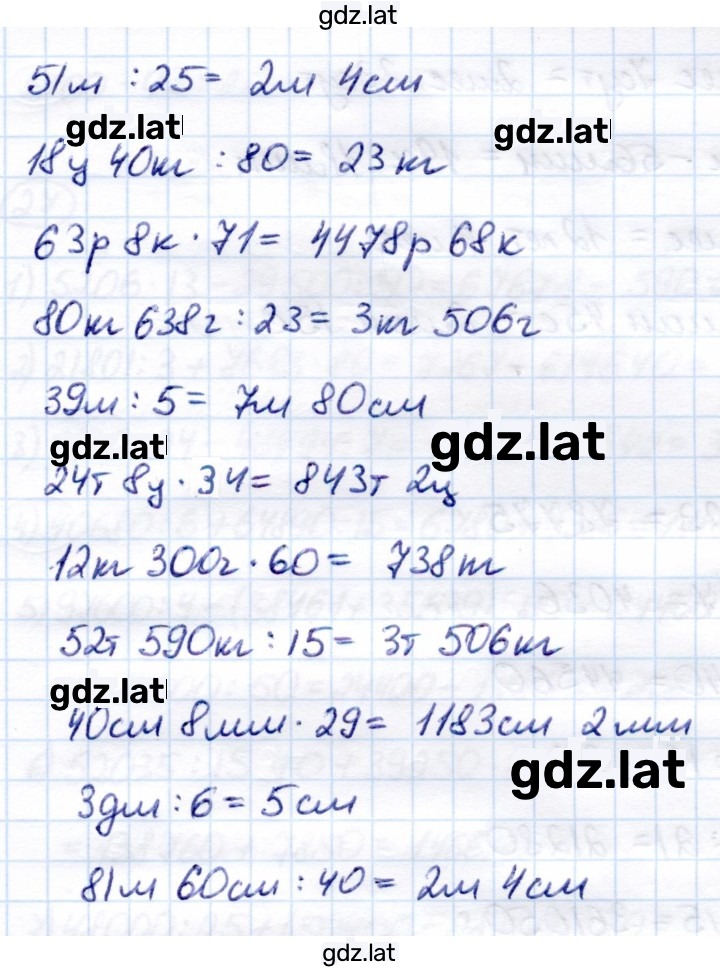 gdz.lat
51м : 25 = 2м 4см
gdz.lat gdz.lat
18ц 40кг : 80 = 23кг
63р 8к · 71 = 4478р 68к
80кг 638г : 23 = 3кг 506г
39м : 5 = 7м 80см
gdz.lat gdz.lat
24т 8ц · 34 = 843т 2ц
12кг 300г · 60 = 738кг
52т 590кг : 15 = 3т 506кг
gdz.lat
40см 8мм · 29 = 1183см 2мм
gdz.lat
3дм : 6 = 5см
81м 60см : 40 = 2м 4см
gdz.lat